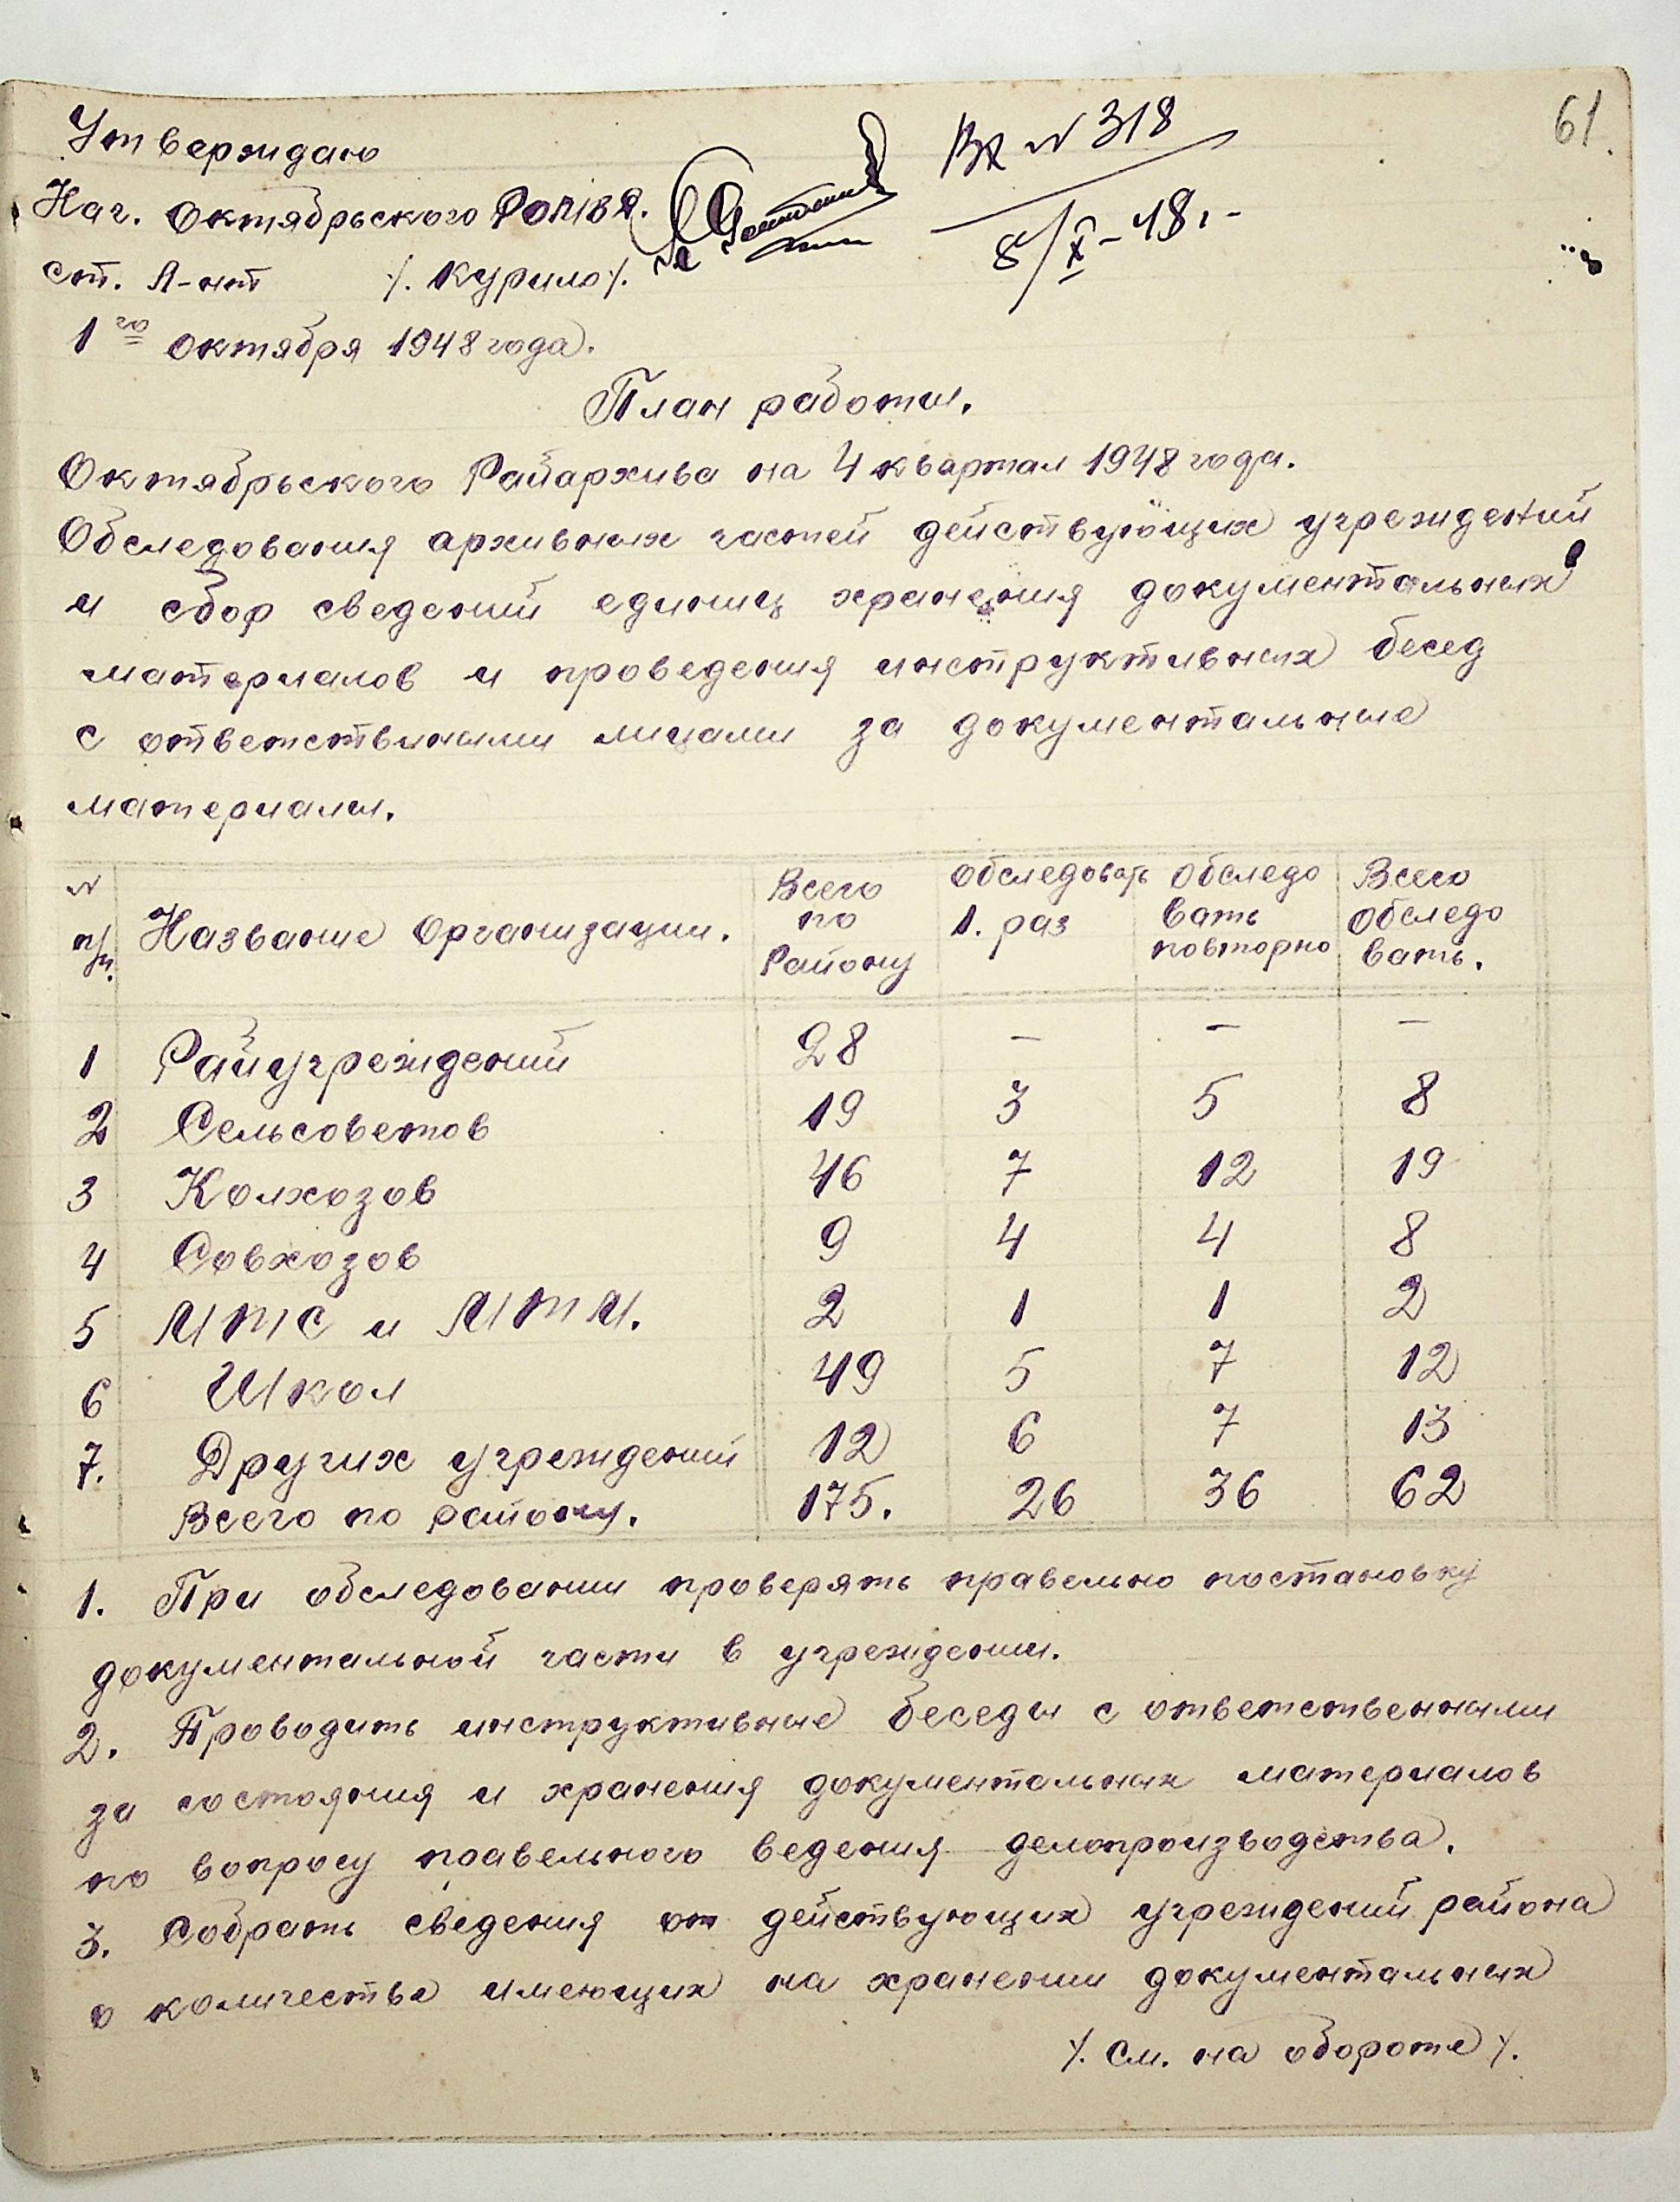 61.
Утверждаю
Вх № 318
Нач. Октябрьского РОМВД.
8/X-48г.-
ст. л-нт /. Курило/.
1го октября 1948 года.
План работы.
Октябрьского Райархива на 4 квартал 1948 года.
Обследования архивных частей действующих учреждений
и сбор сведений единиц хранения документальных
материалов и проведения инструктивных бесед
с ответствиными лицами за документальные
материалы.
№ п/п. Название организации. Всего по Району обследовать 1. раз обследовать повторно Всего обследовать.
1 Райучреждений 28 — — —
2 Сельсоветов 19 3 5 8
3 Колхозов 46 7 12 19
4 Совхозов 9 4 4 8
5 МТС и МТМ. 2 1 1 2
6 Школ 49 5 7 12
7. Других учреждений 12 6 7 13
Всего по району. 175. 26 36 62
1. При обследовании проверять правельно постановку
документальной части в учреждении.
2. Проводить инструктивные беседы с ответственными
за состояния и хранения документальных материалов
по вопросу правельного ведения делопроизводства.
3. Собрать сведения от действующих учреждений района
о количества имеющих на хранении документальных
/. см. на обороте /.